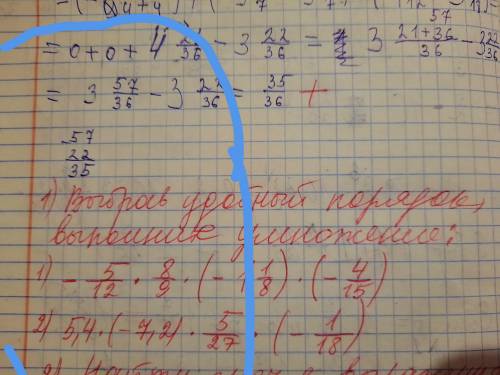 = 0 + 0 + 4 21/36 - 3 22/36 = 3 21+36/36 - 22/36
57
= 3 57/36 - 3 22/36 = 35/36 +
57
22
35
1) Выбрав удобный порядок,
выполните умножение:
1) - 5/12 · 8/9 · (- 1 1/8) · (- 4/15)
2) 5,4 · (-7,2) · 5/27 · (- 1/18)